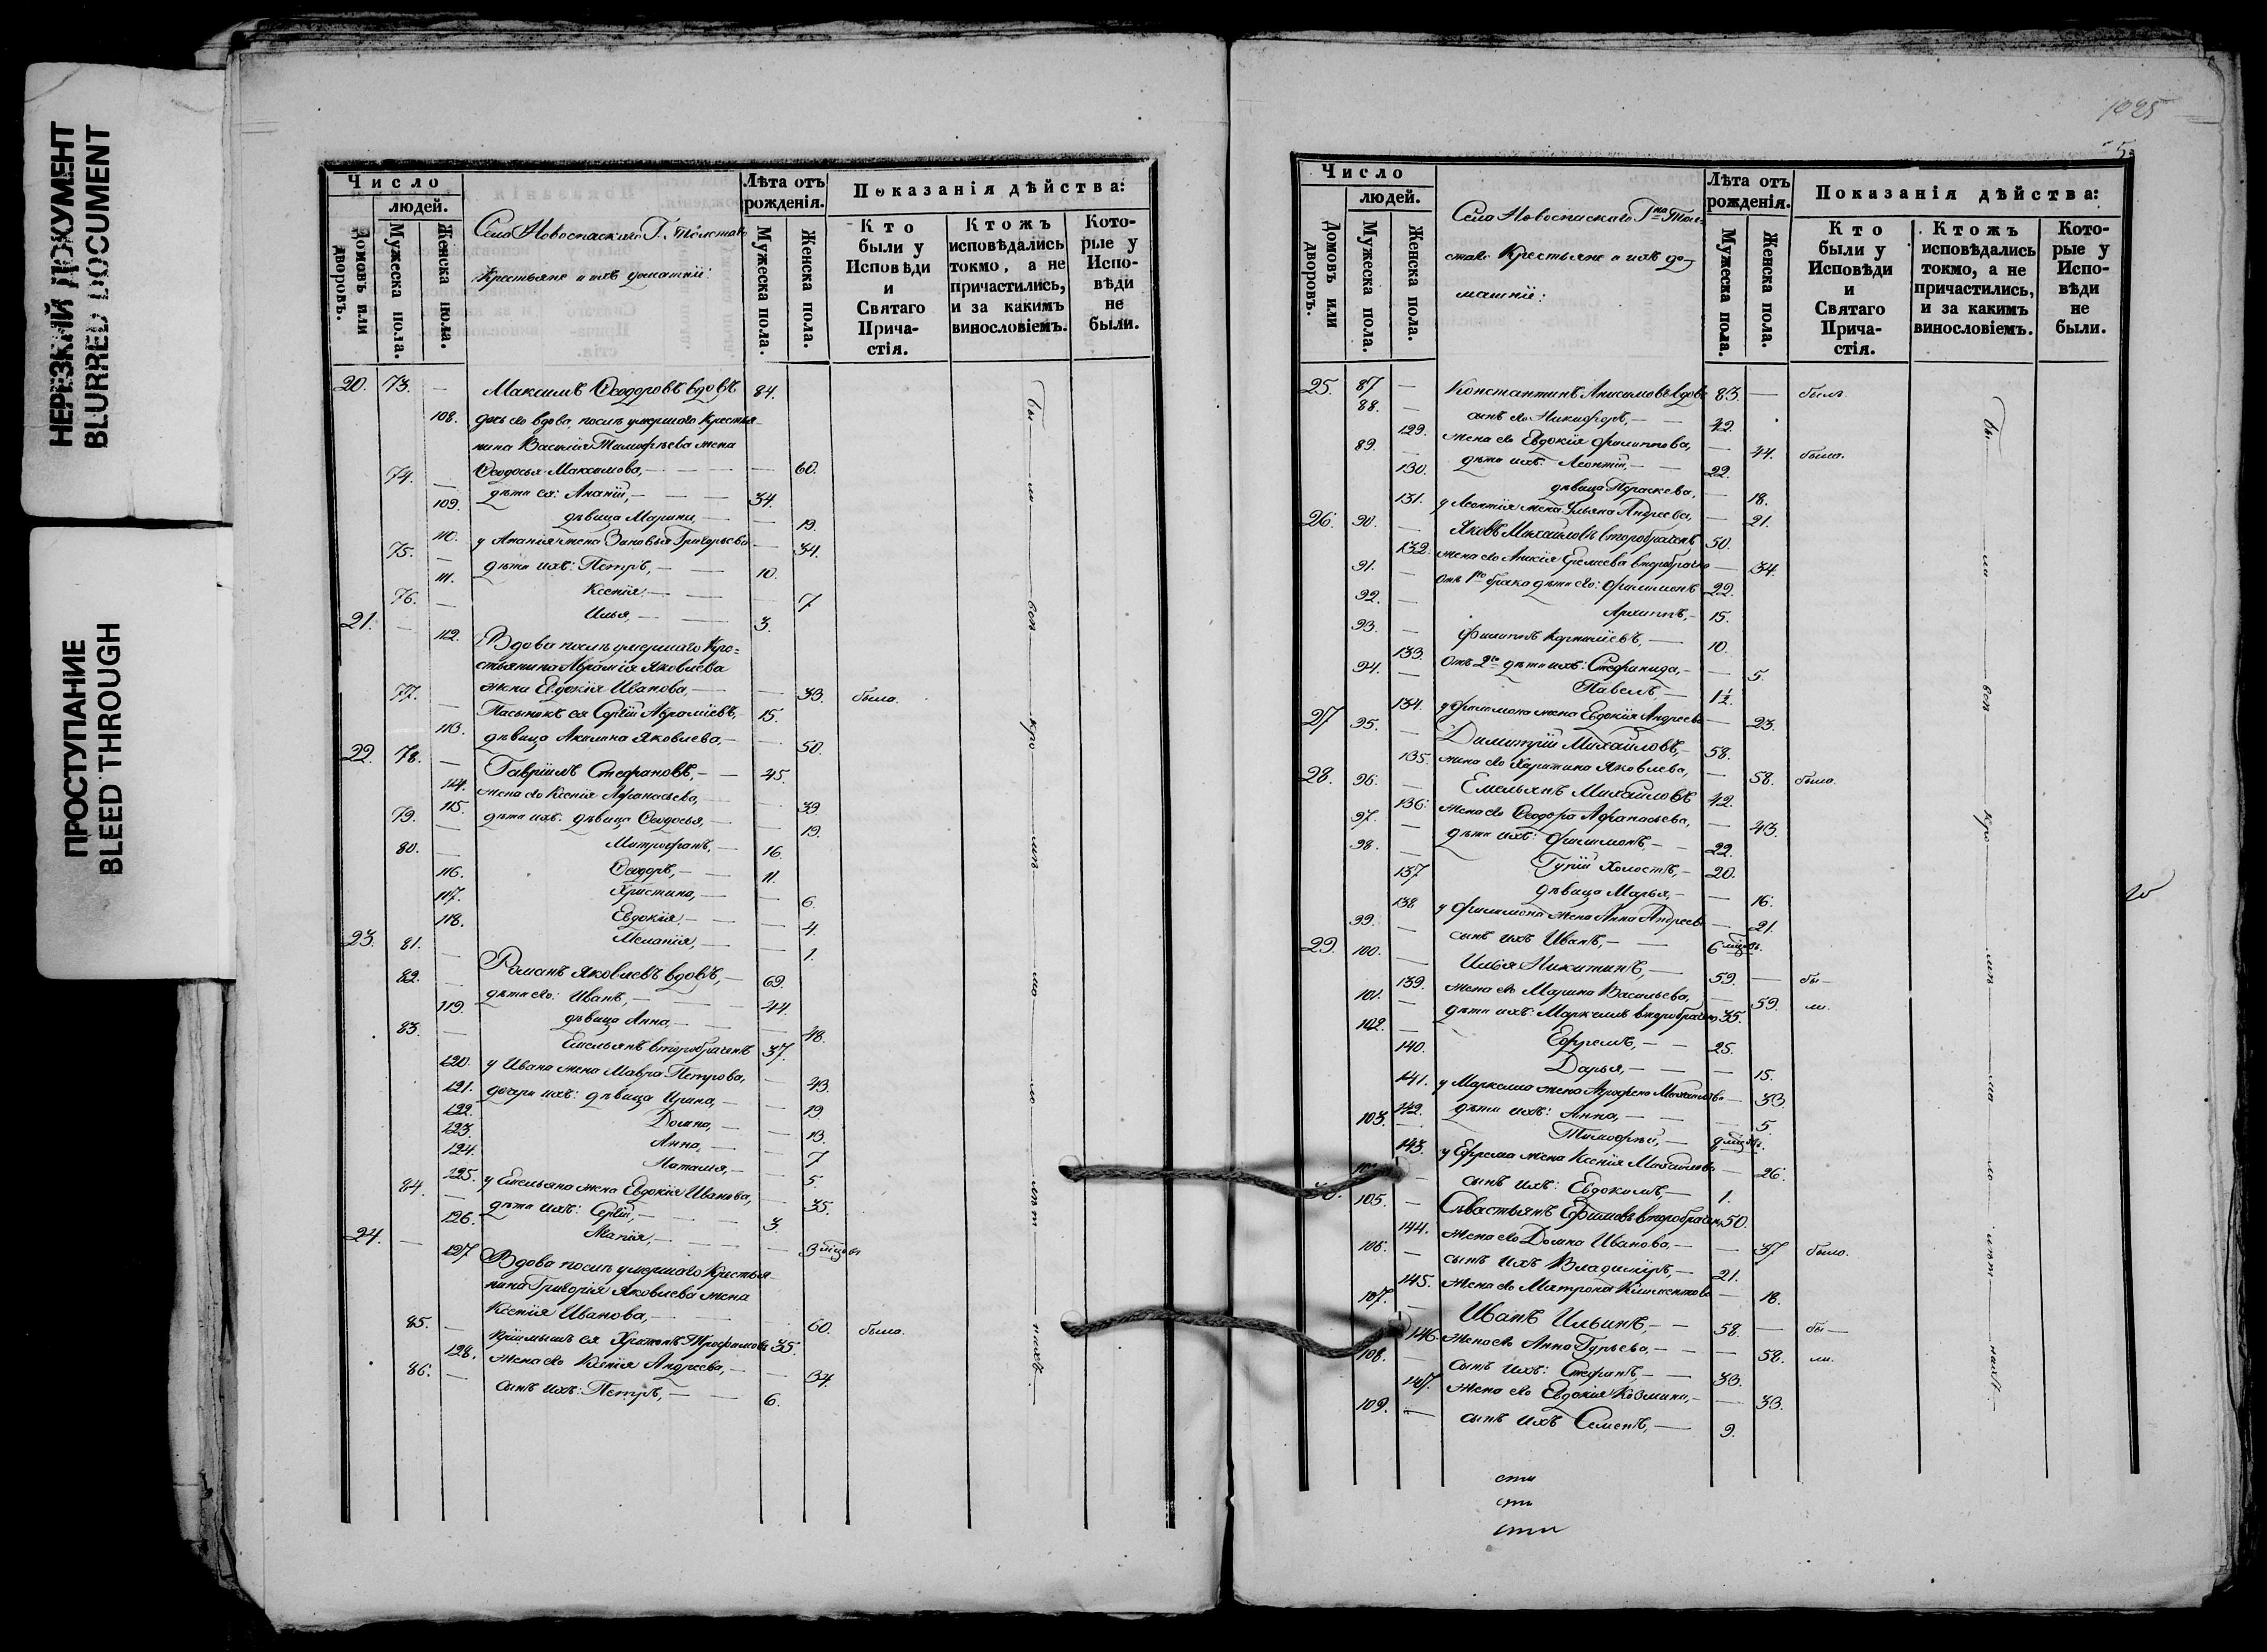 НЕРЕЗКИЙ ДОКУМЕНТ
BLURRED DOCUMENT
ПРОСТУПАНИЕ
BLEED THROUGH
Число
людей.
Домовъ или дворовъ.
Мужеска пола.
Женска пола.
Села Новоспаскаго Г. Толстаго
Крестьяне и ихъ домашніи:
Лѣта отъ рожденія.
Мужеска пола.
Женска пола.
Показанія дѣйства:
Кто были у Исповѣди и Святаго Прича-стія.
Ктожъ исповѣдались токмо, а не причастились, и за какимъ винословіемъ.
Кото-рые у Испо-вѣди не были.
20. 73. — Максимъ Ѳеодоровъ вдовъ 84.
108. дочь его вдова, послѣ умершаго крестья-
нина Василія Тимофѣева жена
Ѳеодосья Максимова, — — 60.
74. — дѣти ея: Ананій, — — 34.
109. дѣвица Марина, — — 19.
110. у Ананія жена Зиновья Григорьева — 34.
75. — дѣти ихъ: Петръ, — — 10.
111. Ксенія, — — 7
76. — Илья, — — 3.
21. — 112. Вдова послѣ умершаго Кре=
стьянина Авраамія Яковлева
жена Евдокія Иванова, — — 33. была.
77. — Пасынокъ ея Сергій Авраміевъ, — 15.
113. дѣвица Акилина Яковлева, — — 50.
22. 78. — Гавріилъ Стефановъ, — 45.
114. жена его Ксенія Афанасьева, — 39
115. дѣти ихъ: дѣвица Ѳеодосья, — — 19.
79. — Митрофанъ, — 16.
80. — Ѳеодоръ, — 11.
116. Христина, — — 6.
117. Евдокія — — 4.
118. Меланія, — — 1.
23. 81. — Романъ Яковлевъ вдовъ, — 69.
82. — дѣти его: Иванъ, — — 44.
119. дѣвица Анна, — — 48.
83. — Емельянъ второбраченъ 37.
120. у Ивана жена Мавра Петрова, — 43.
121. дочери ихъ: дѣвица Ирина, — — 19
122. Домна, — — 13.
123. Анна, — — 7
124. Наталья, — — 5.
125. у Емельяна жена Евдокія Иванова, — 35.
84. — дѣти ихъ: Сергій, — — 3.
126. Марія, — — 3 мѣцовъ
24. — 127 Вдова послѣ умершаго Крестья-
нина Григорія Яковлева жена
Ксенія Иванова, — — 60. была.
85. — пріимышъ ея Харитонъ Трофимовъ 35.
128. жена его Ксенія Андреева, — — 34.
86. — сынъ ихъ: Петръ, — — 6.
1025
5
Число
людей.
Домовъ или дворовъ.
Мужеска пола.
Женска пола.
Села Новоспаскаго Гна Тол-
стаго Крестьяне и ихъ до-
машніи:
Лѣта отъ рожденія.
Мужеска пола.
Женска пола.
Показанія дѣйства:
Кто были у Исповѣди и Святаго Прича-стія.
Ктожъ исповѣдались токмо, а не причастились, и за какимъ винословіемъ.
Кото-рые у Испо-вѣди не были.
25. 87 — Константинъ Анисимовъ вдовъ 83. — былъ
88. — сынъ его Никифоръ, — — 42.
129. жена его Евдокія Филиппова, — 44. была.
89. — дѣти ихъ: Леонтій, — — 22.
130. дѣвица Параскева, — 18.
131. у Леонтія жена Ульяна Андреева, — 21.
26. 90. — Яковъ Михайловъ второбраченъ 50.
132. жена его Аникія Еремеева второбрачна — 34.
91. — отъ 1го брака дѣти его: Филимонъ 22.
92. — Архиппъ, — 15.
93. — Филиппъ Корниліевъ, — 10.
133. отъ 2го дѣти ихъ: Стефанида, — — 5.
94. — Павелъ — 1½.
134. у Филимона жена Евдокія Андреева — 23.
27 95. — Димитрій Михайловъ, — 58.
135. жена его Харитина Яковлева, — 58. была.
28. 96. — Емельянъ Михайловъ 42.
136. жена его Ѳеодора Афанасьева, — 43.
97. — дѣти ихъ: Филимонъ — — 22.
98. — Гурій холостъ, — 20.
137 дѣвица Марья, — — 16.
138 у Филимона жена Анна Андреева — 21.
99. — сынъ ихъ Иванъ, — — 6 мѣцовъ.
29. 100. — Илья Никитинъ, — 59. — бы—
139. жена его Марина Васильева, — 59. ли.
101. — дѣти ихъ: Маркеллъ второбраченъ 35.
102. — Ефремъ, — — 25.
140. Дарья, — — 15.
141. у Маркелла жена Агрофена Михайлова — 33.
142. дѣти ихъ: Анна, — — 5
103. — Тимофѣй, — 9 мѣцовъ.
143. у Ефрема жена Ксенія Михайлова — 26.
— сынъ ихъ: Евдокимъ, — 1.
105. — Севастьянъ Ефимовъ второбраченъ 50.
144. жена его Домна Иванова, — — 37 была.
106. — сынъ ихъ Владиміръ, — 21.
145. жена его Матрона Климентова — 18.
107. — Иванъ Ильинъ, — — 58. — бы—
146. жена его Анна Гурьева, — — 58. ли.
108. — сынъ ихъ: Стефанъ, — 33.
147. жена его Евдокія Козмина, — — 33.
109. — сынъ ихъ Семенъ, — 9.